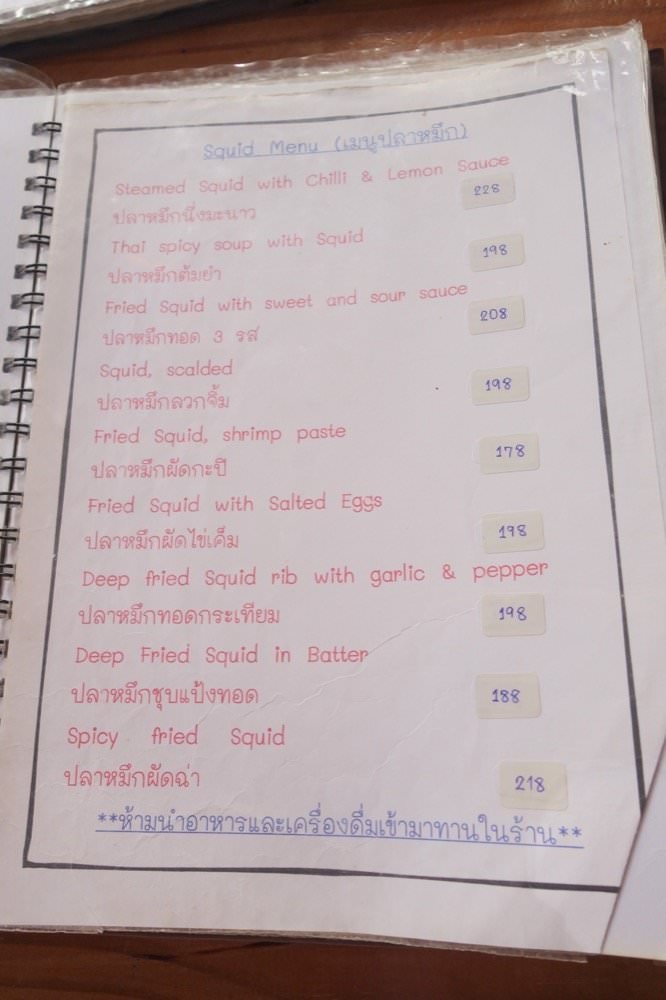 Squid Menu (เมนูปลาหมึก)
Steamed Squid with Chilli & Lemon Sauce
228
ปลาหมึกนึ่งมะนาว
Thai spicy soup with Squid
198
ปลาหมึกต้มยำ
Fried Squid with sweet and sour sauce
208
ปลาหมึกทอด 3 รส
Squid, scalded
198
ปลาหมึกลวกจิ้ม
Fried Squid, shrimp paste
178
ปลาหมึกผัดกะปิ
Fried Squid with Salted Eggs
198
ปลาหมึกผัดไข่เค็ม
Deep fried Squid rib with garlic & pepper
198
ปลาหมึกทอดกระเทียม
Deep Fried Squid in Batter
188
ปลาหมึกชุบแป้งทอด
Spicy fried Squid
218
ปลาหมึกผัดฉ่า
**ห้ามนำอาหารและเครื่องดื่มเข้ามาทานในร้าน**